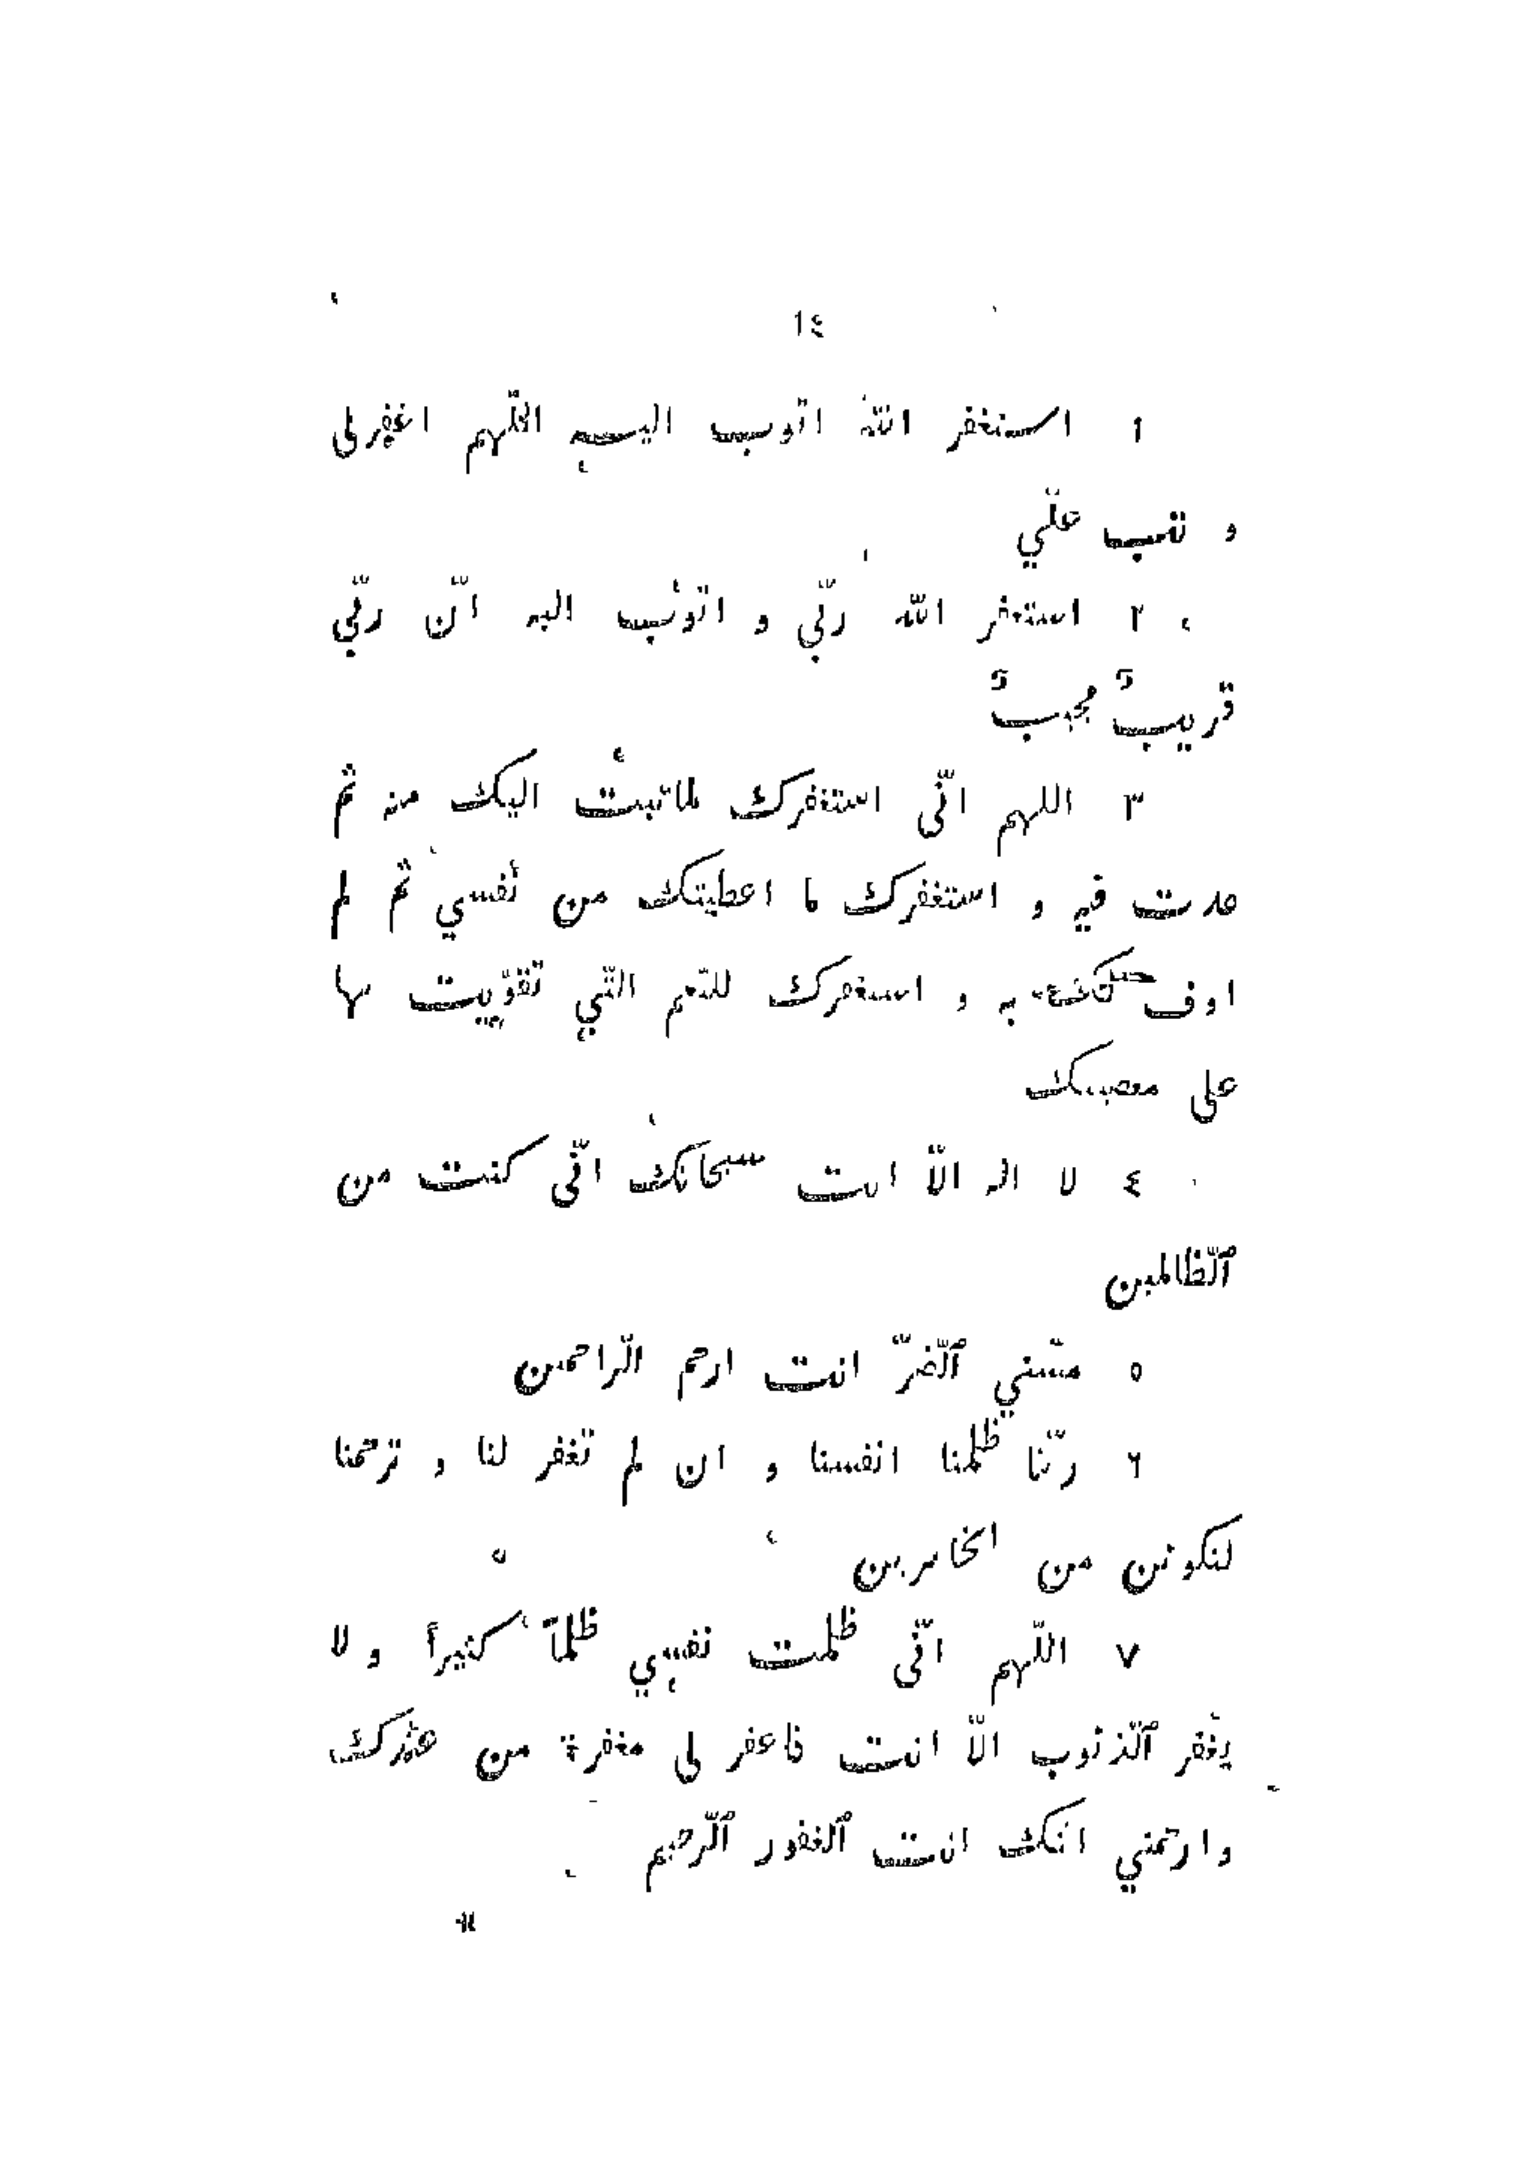 ١٤
١ استغفر الله اتوب اليه اللّهم اغفرلى
و تب علّي
٢ استغفر الله ربّي و اتوب اليه انّ ربّي
قريبٌ مجيبٌ
٣ اللهم انّى استغفرك لما تبت اليك منه ثم
عدت فيه و استغفرك لما اعطيتك من نفسي ثم لم
اوف لك به و استغفرك للنّعم الّتي تقوّيت بها
على معصيتك
٤ لا اله الاّ انت سبحانك انّى كنت من
ٱلظّالمين
٥ مسّني ٱلضّرّ انت ارحم الرّاحمين
٦ ربّنا ظلمنا انفسنا و ان لم تغفر لنا و ترحمنا
لنكونن من الخاسرين
٧ اللّهم انّى ظلمت نفسي ظلماً كثيراً و لا
يغفر ٱلذّنوب الاّ انت فاغفر لى مغفرة من عندك
وارحمني انك انت ٱلغفور ٱلرّحيم